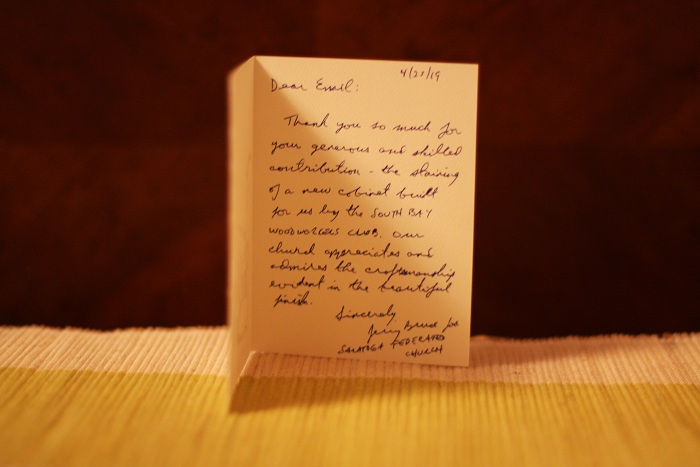 4/21/19
Dear Emil:
Thank you so much for
your generous and skilled
contribution - the staining
of a new cabinet built
for us by the SOUTH BAY
WOODWORKERS CLUB. Our
church appreciates and
admires the craftsmanship
evident in the beautiful
finish.
Sincerely
Jerry
SARATOGA FEDERATED
CHURCH